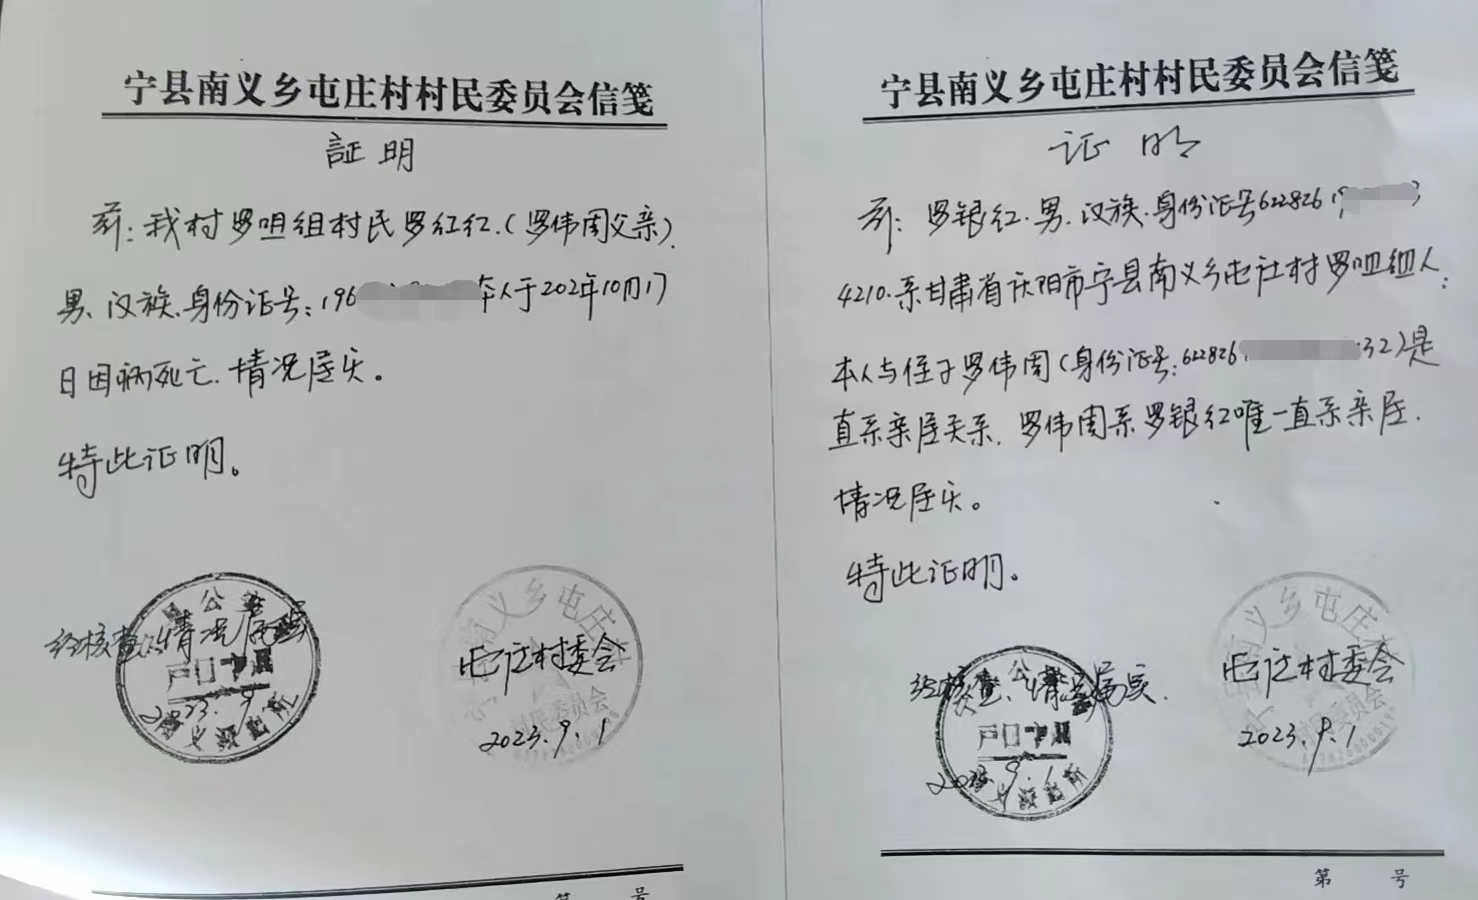 宁县南义乡屯庄村村民委员会信笺
証明
兹：我村罗咀组村民罗红红.(罗伟周父亲).
男、汉族.身份证号：196 本人于202年10月17
日因病死亡.情况属实。
特此证明。
经核查情况属实
户口专用
2023.9.1
屯庄村委会
2023.9.1
第 号
宁县南义乡屯庄村村民委员会信笺
证明
兹：罗银红.男.汉族.身份证号622826 19
4210.系甘肃省庆阳市宁县南义乡屯庄村罗咀组人.
本人与侄子罗伟周(身份证号:622826 32)是
直系亲属关系.罗伟周系罗银红唯一直系亲属.
情况属实。
特此证明。
经核查、情况属实.
户口专用
9.1
南义乡屯庄村
村民委员会
屯庄村委会
2023.9.1
第 号